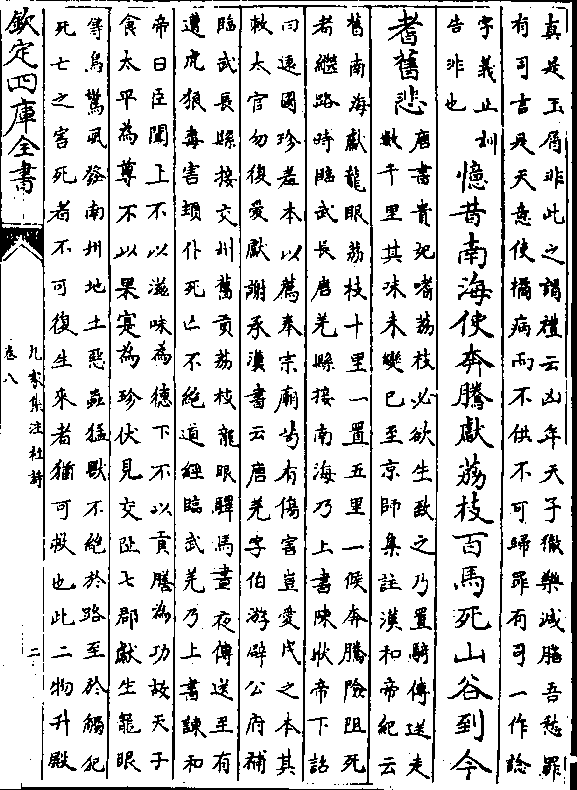 真是玉屑非此之謂禮云凶年天子徹樂減膳吾愁罪
有司言是天意使橘病而不供不可歸罪有司一作諗
字義止訓
告非也
憶昔南海使奔騰獻荔枝百馬死山谷到今
耆舊悲
唐書貴妃嗜荔枝必欲生致之乃置騎傳送走
數千里其味未變已至京師集註漢和帝紀云
舊南海獻龍眼荔枝十里一置五里一候奔騰險阻死
者繼路時臨武長唐羌縣接南海乃上書陳狀帝下詔
曰遠國珍羞本以薦奉宗廟茍有傷害豈愛民之本其
敕太官勿復受獻謝承漢書云唐羌字伯游辟公府補
臨武長縣接交州舊貢荔枝龍眼驛馬晝夜傳送至有
遭虎狼毒害頓仆死亡不絶道經臨武羌乃上書諫和
帝曰臣聞上不以滋味為德下不以貢膳為功故天子
食太平為尊不以果實為珍伏見交阯七郡獻生龍眼
等鳥驚風發南州地土惡蟲猛獸不絶於路至於觸犯
死亡之害死者不可復生來者猶可救也此二物升殿
欽定四庫全書
九家集注杜詩
卷八
二